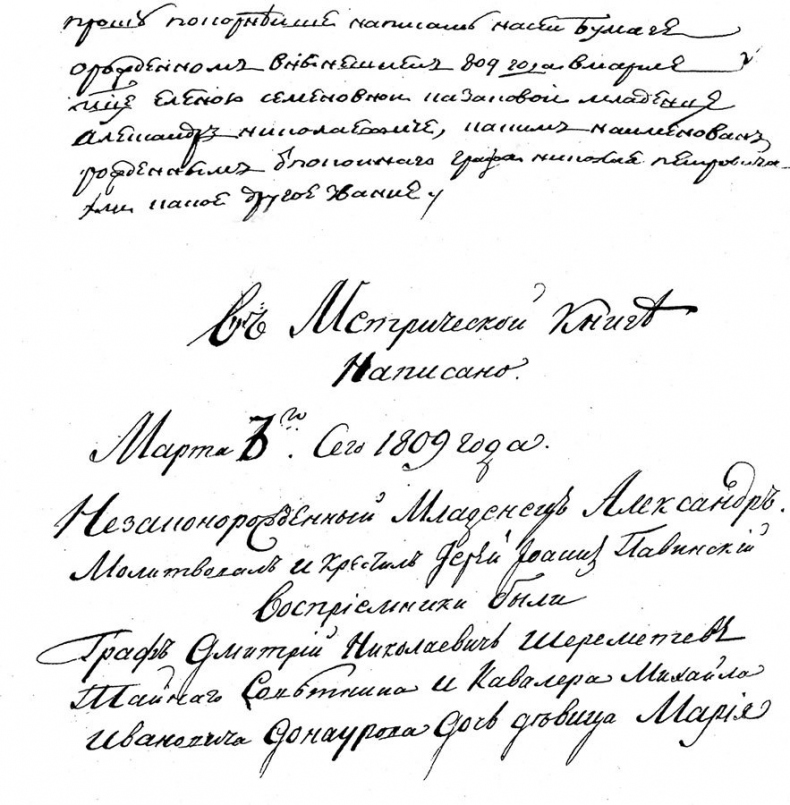 прошѣ покорнѣйше написать насей бумаге
орожденномъ внынешнемъ 809 годе вмарте
мце Еленою семеновнои казаковой младенце
Александръ николаевиче, какимъ наименованъ
рожденнымъ б покойнаго графа николая петровича
или какое другое звание,
Въ Метрической Книгѣ
Написано.
Марта 7го. Сего 1809 года.
Незаконорожденный Младенецъ Александръ.
Молитвовалъ и крестилъ Іерей Іоаннъ Павинскій
Воспріемники были
Графъ Дмитрій Николаевичъ Шереметевъ
Тайнаго Совѣтника и Кавалера Михайла
Ивановича Донаурова Дочь дѣвица Марія